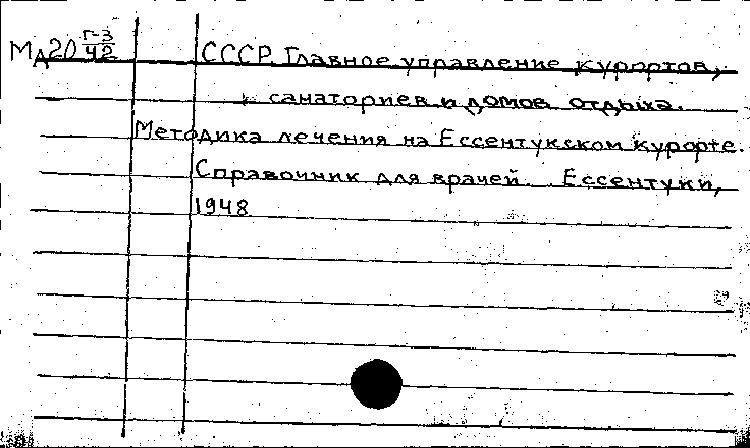 Мд20 Г-3/42 СССР. Главное управление курортов,
санаториев и домов отдыха.
Методика лечения на Ессентукском курорте.
Справочник для врачей. Ессентуки,
1948